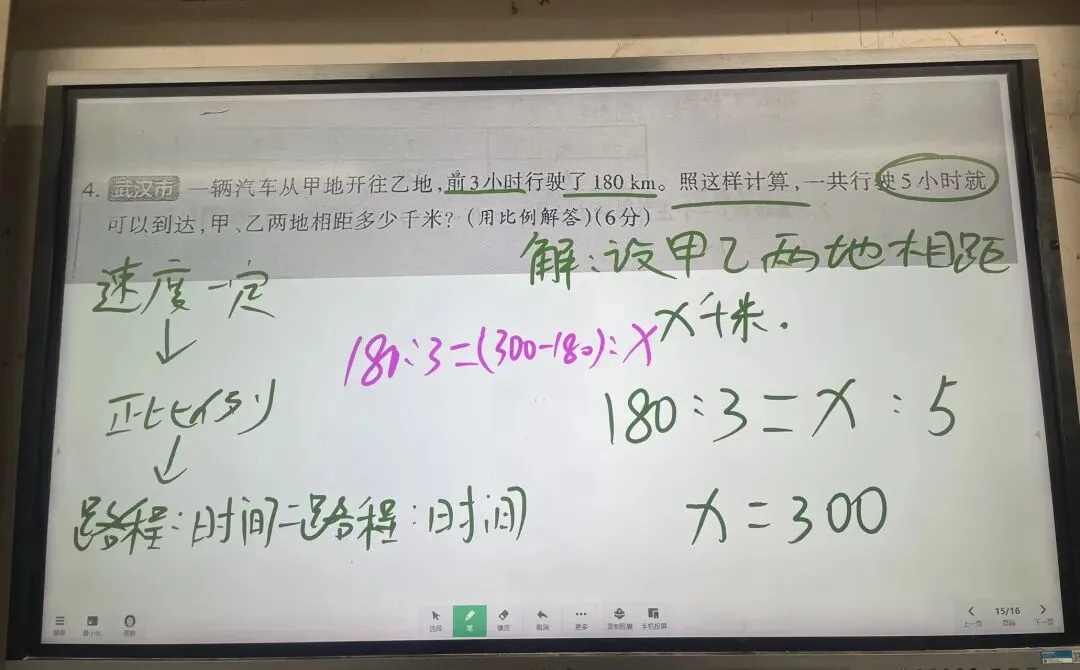 4. 武汉市 一辆汽车从甲地开往乙地,前3小时行驶了180 km。照这样计算,一共行驶5小时就
可以到达,甲、乙两地相距多少千米?(用比例解答)(6分)
解:设甲乙两地相距
x千米.
速度一定
↓
正比例
↓
路程:时间=路程:时间
180:3=(300-180):x
180:3=x:5
x=300
菜单 最小化
选择 笔 橡皮 撤消 更多 录制胶囊 手机投屏
15/16
上一页 页码 下一页